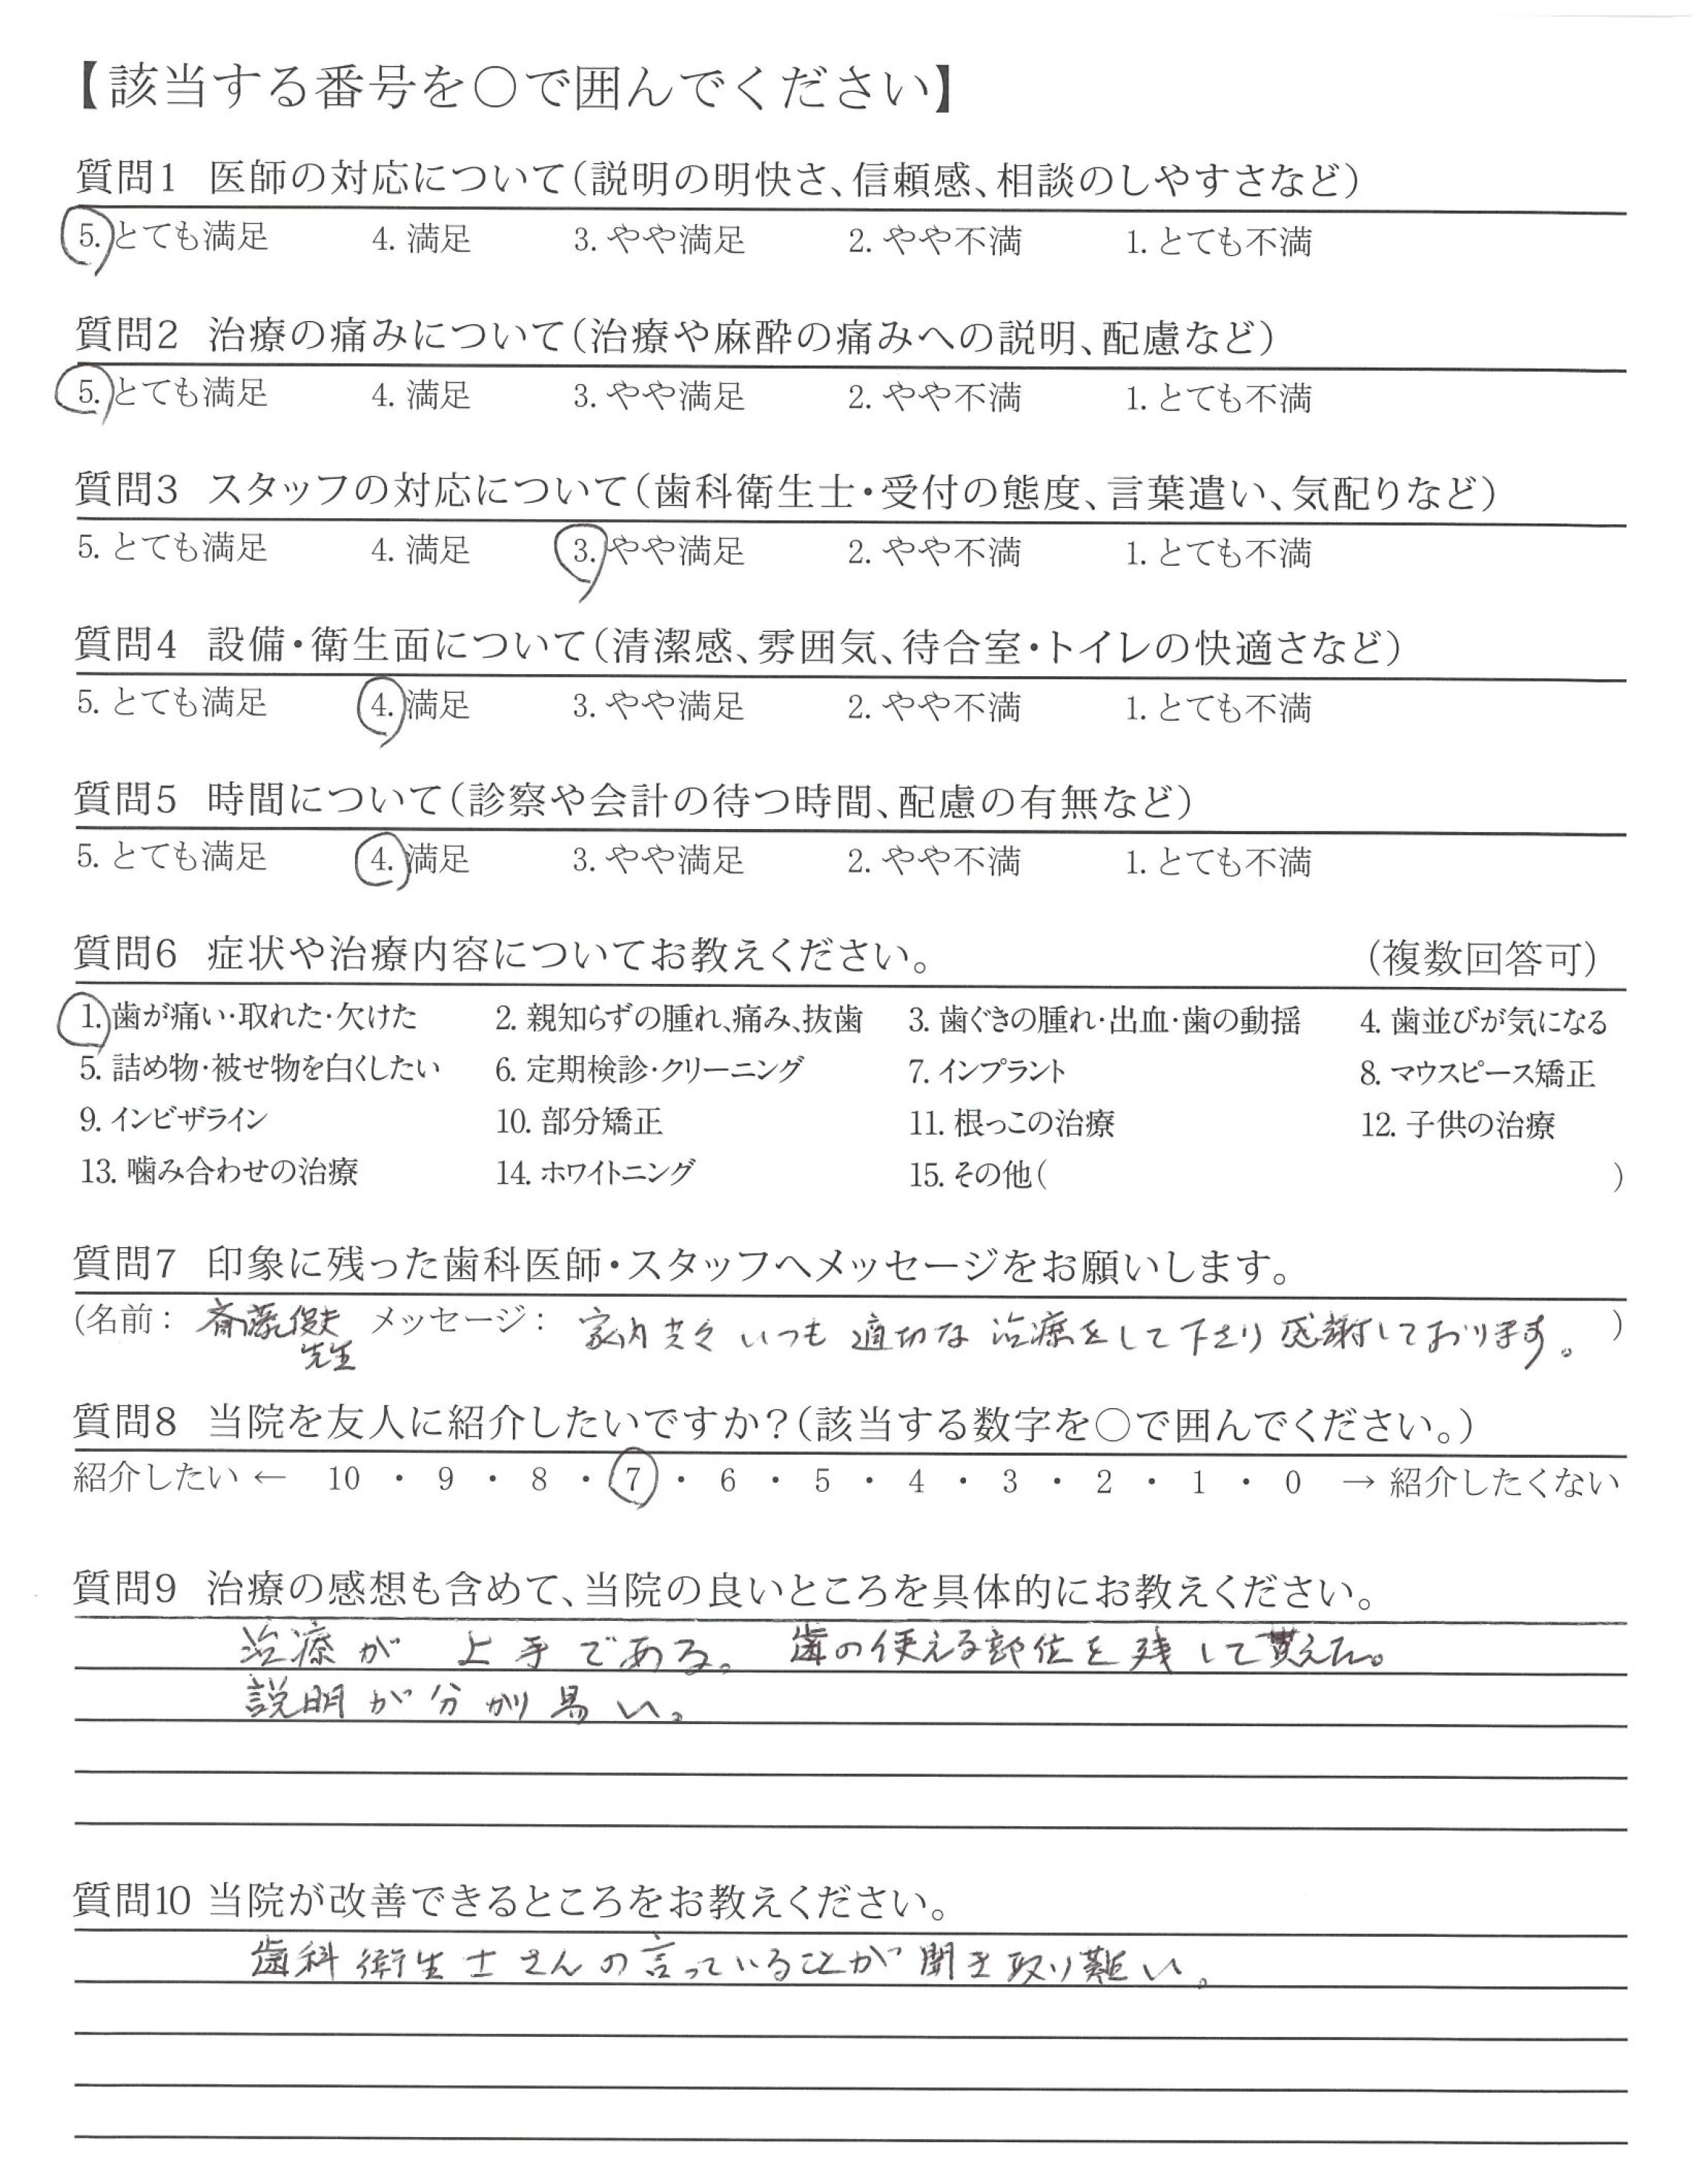 【該当する番号を○で囲んでください】
質問1 医師の対応について（説明の明快さ、信頼感、相談のしやすさなど）
5. とても満足 4. 満足 3. やや満足 2. やや不満 1. とても不満
質問2 治療の痛みについて（治療や麻酔の痛みへの説明、配慮など）
5. とても満足 4. 満足 3. やや満足 2. やや不満 1. とても不満
質問3 スタッフの対応について（歯科衛生士・受付の態度、言葉遣い、気配りなど）
5. とても満足 4. 満足 3. やや満足 2. やや不満 1. とても不満
質問4 設備・衛生面について（清潔感、雰囲気、待合室・トイレの快適さなど）
5. とても満足 4. 満足 3. やや満足 2. やや不満 1. とても不満
質問5 時間について（診察や会計の待つ時間、配慮の有無など）
5. とても満足 4. 満足 3. やや満足 2. やや不満 1. とても不満
質問6 症状や治療内容についてお教えください。 （複数回答可）
1. 歯が痛い・取れた・欠けた 2. 親知らずの腫れ、痛み、抜歯 3. 歯ぐきの腫れ・出血・歯の動揺 4. 歯並びが気になる
5. 詰め物・被せ物を白くしたい 6. 定期検診・クリーニング 7. インプラント 8. マウスピース矯正
9. インビザライン 10. 部分矯正 11. 根っこの治療 12. 子供の治療
13. 噛み合わせの治療 14. ホワイトニング 15. その他（ ）
質問7 印象に残った歯科医師・スタッフへメッセージをお願いします。
（名前： 斎藤俊夫 メッセージ： 家内共々いつも適切な治療をして下さり感謝しております。 ）
先生
質問8 当院を友人に紹介したいですか？（該当する数字を○で囲んでください。）
紹介したい ← 10 ・ 9 ・ 8 ・ 7 ・ 6 ・ 5 ・ 4 ・ 3 ・ 2 ・ 1 ・ 0 → 紹介したくない
質問9 治療の感想も含めて、当院の良いところを具体的にお教えください。
治療が上手である。歯の使える部位を残して貰えた。
説明が分かり易い。
質問10 当院が改善できるところをお教えください。
歯科衛生士さんの言っていることが聞き取り難い。